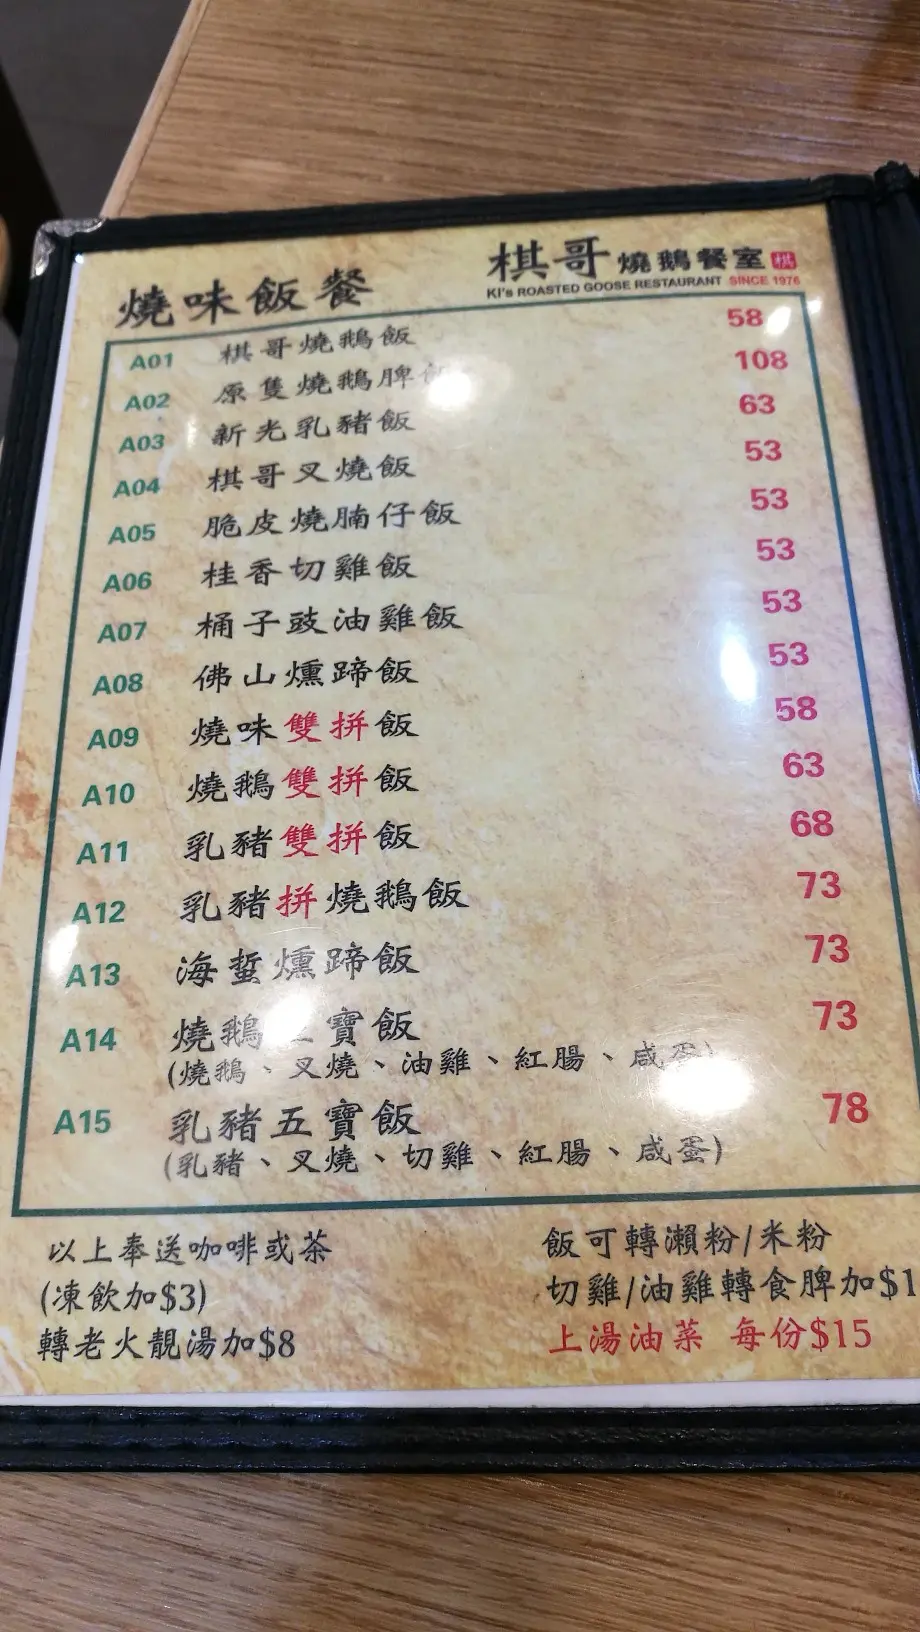 棋哥燒鵝餐室 棋
KI's ROASTED GOOSE RESTAURANT SINCE 1976
燒味飯餐
A01 棋哥燒鵝飯 58
A02 原隻燒鵝脾 108
A03 新光乳豬飯 63
A04 棋哥叉燒飯 53
A05 脆皮燒腩仔飯 53
A06 桂香切雞飯 53
A07 桶子豉油雞飯 53
A08 佛山燻蹄飯 53
A09 燒味雙拼飯 58
A10 燒鵝雙拼飯 63
A11 乳豬雙拼飯 68
A12 乳豬拼燒鵝飯 73
A13 海蜇燻蹄飯 73
A14 燒鵝寶飯 73
(燒鵝、叉燒、油雞、紅腸、咸蛋)
A15 乳豬五寶飯 78
(乳豬、叉燒、切雞、紅腸、咸蛋)
以上奉送咖啡或茶
(凍飲加$3)
轉老火靚湯加$8
飯可轉瀨粉/米粉
切雞/油雞轉食脾加$1
上湯油菜 每份$15